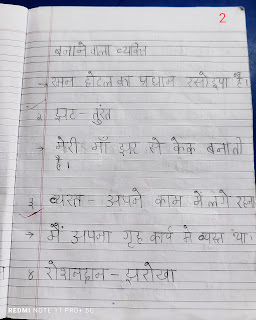 2
बनाने वाला व्यक्ति
→ रमन होटल का प्रधान रसोइया है।
२ झट - तुरंत
→ मेरी माँ झट से केक बनाती
है।
३ व्यस्त - अपने काम में लगे रहना
→ मैं अपना गृह कार्य में व्यस्त था।
४ रोशनदान - झरोखा
REDMI NOTE 11 PRO+ 5G